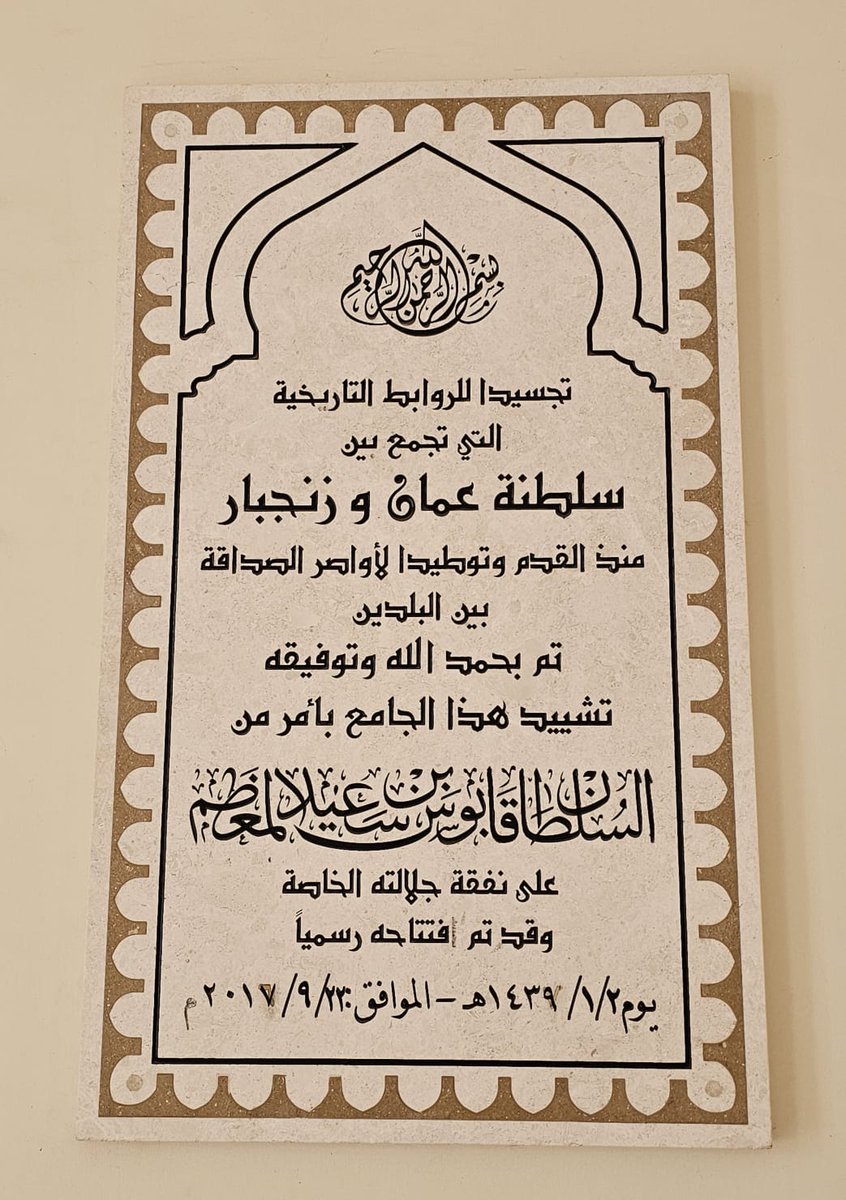 بسم الله الرحمن الرحيم
تجسيدا للروابط التاريخية
التي تجمع بين
سلطنة عمان و زنجبار
منذ القدم وتوطيدا لأواصر الصداقة
بين البلدين
تم بحمد الله وتوفيقه
تشييد هذا الجامع بأمر من
السُلطان قَابوس بن سَعيد المعَظم
على نفقة جلالته الخاصة
وقد تم إفتتاحه رسمياً
يوم ١/٢/ ١٤٣٩هـ - الموافق: ٩/٢٣/ ٢٠١٧م